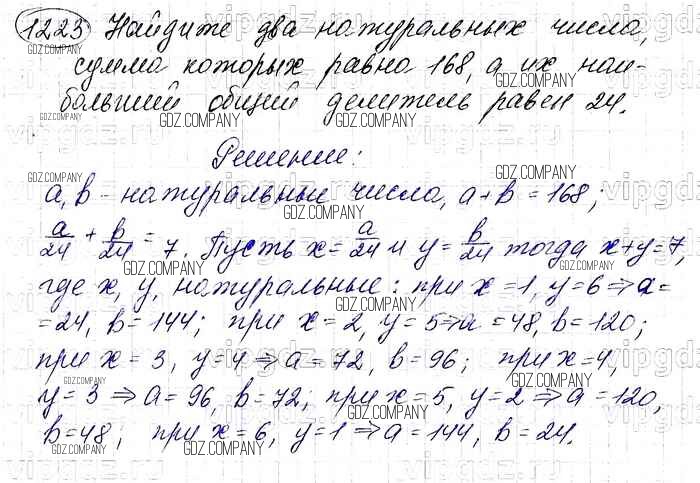 1223 Найдите два натуральных числа,
сумма которых равна 168, а их наи-
больший общий делитель равен 24.
Решение:
a, b - натуральные числа, a + b = 168;
a/24 + b/24 = 7. Пусть x = a/24 и y = b/24 тогда x+y=7,
где x, y, натуральные: при x = 1, y = 6 ⇒ a =
= 24, b = 144; при x = 2, y = 5 ⇒ a = 48, b = 120;
при x = 3, y = 4 ⇒ a = 72, b = 96; при x = 4,
y = 3 ⇒ a = 96, b = 72; при x = 5, y = 2 ⇒ a = 120,
b = 48; при x = 6, y = 1 ⇒ a = 144, b = 24.
GDZ.COMPANY
vipgdz.ru